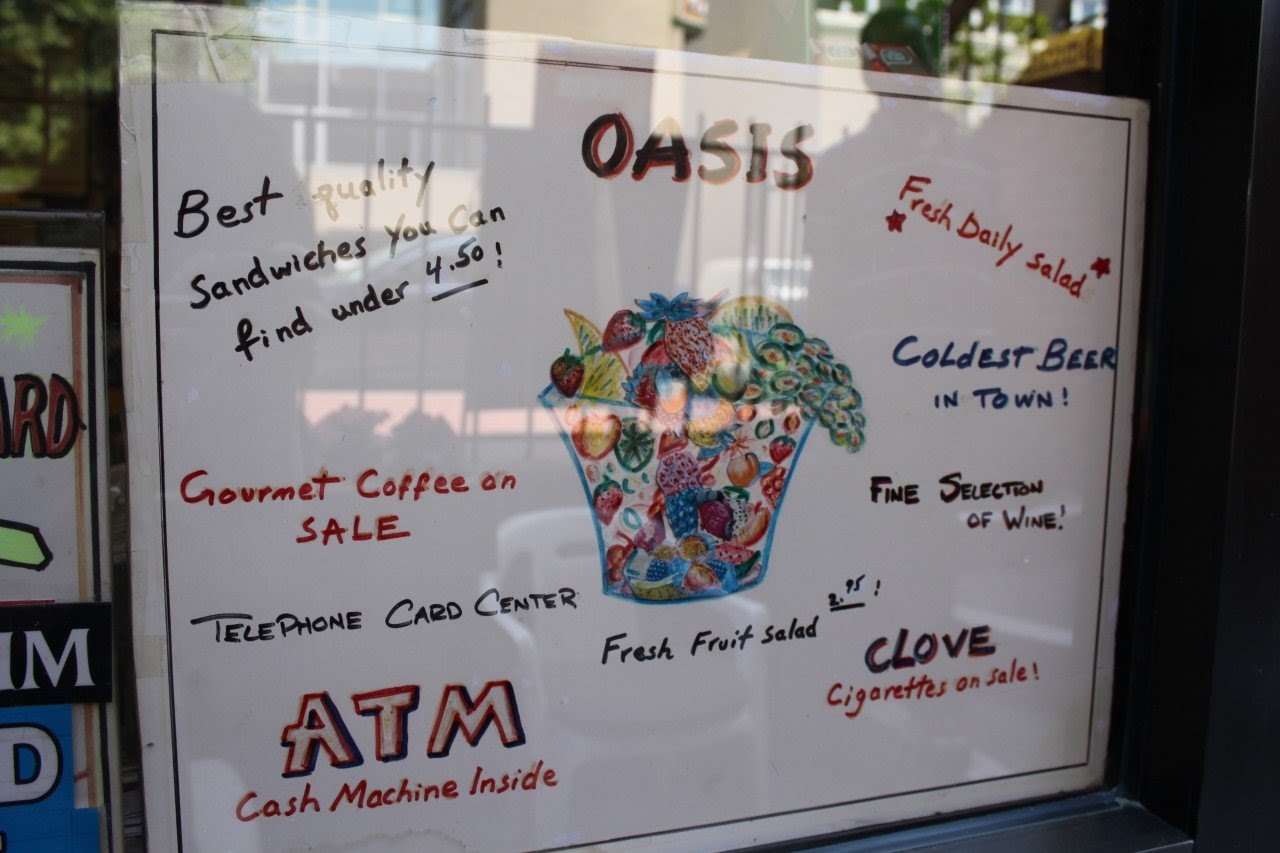 OASIS
Best quality
Sandwiches You Can
find under 4.50!
Fresh Daily salad
COLDEST BEER
IN TOWN!
Gourmet Coffee on
SALE
FINE SELECTION
OF WINE!
TELEPHONE CARD CENTER
Fresh Fruit salad 2.95!
CLOVE
Cigarettes on sale!
ATM
Cash Machine Inside
ARD
IM
D